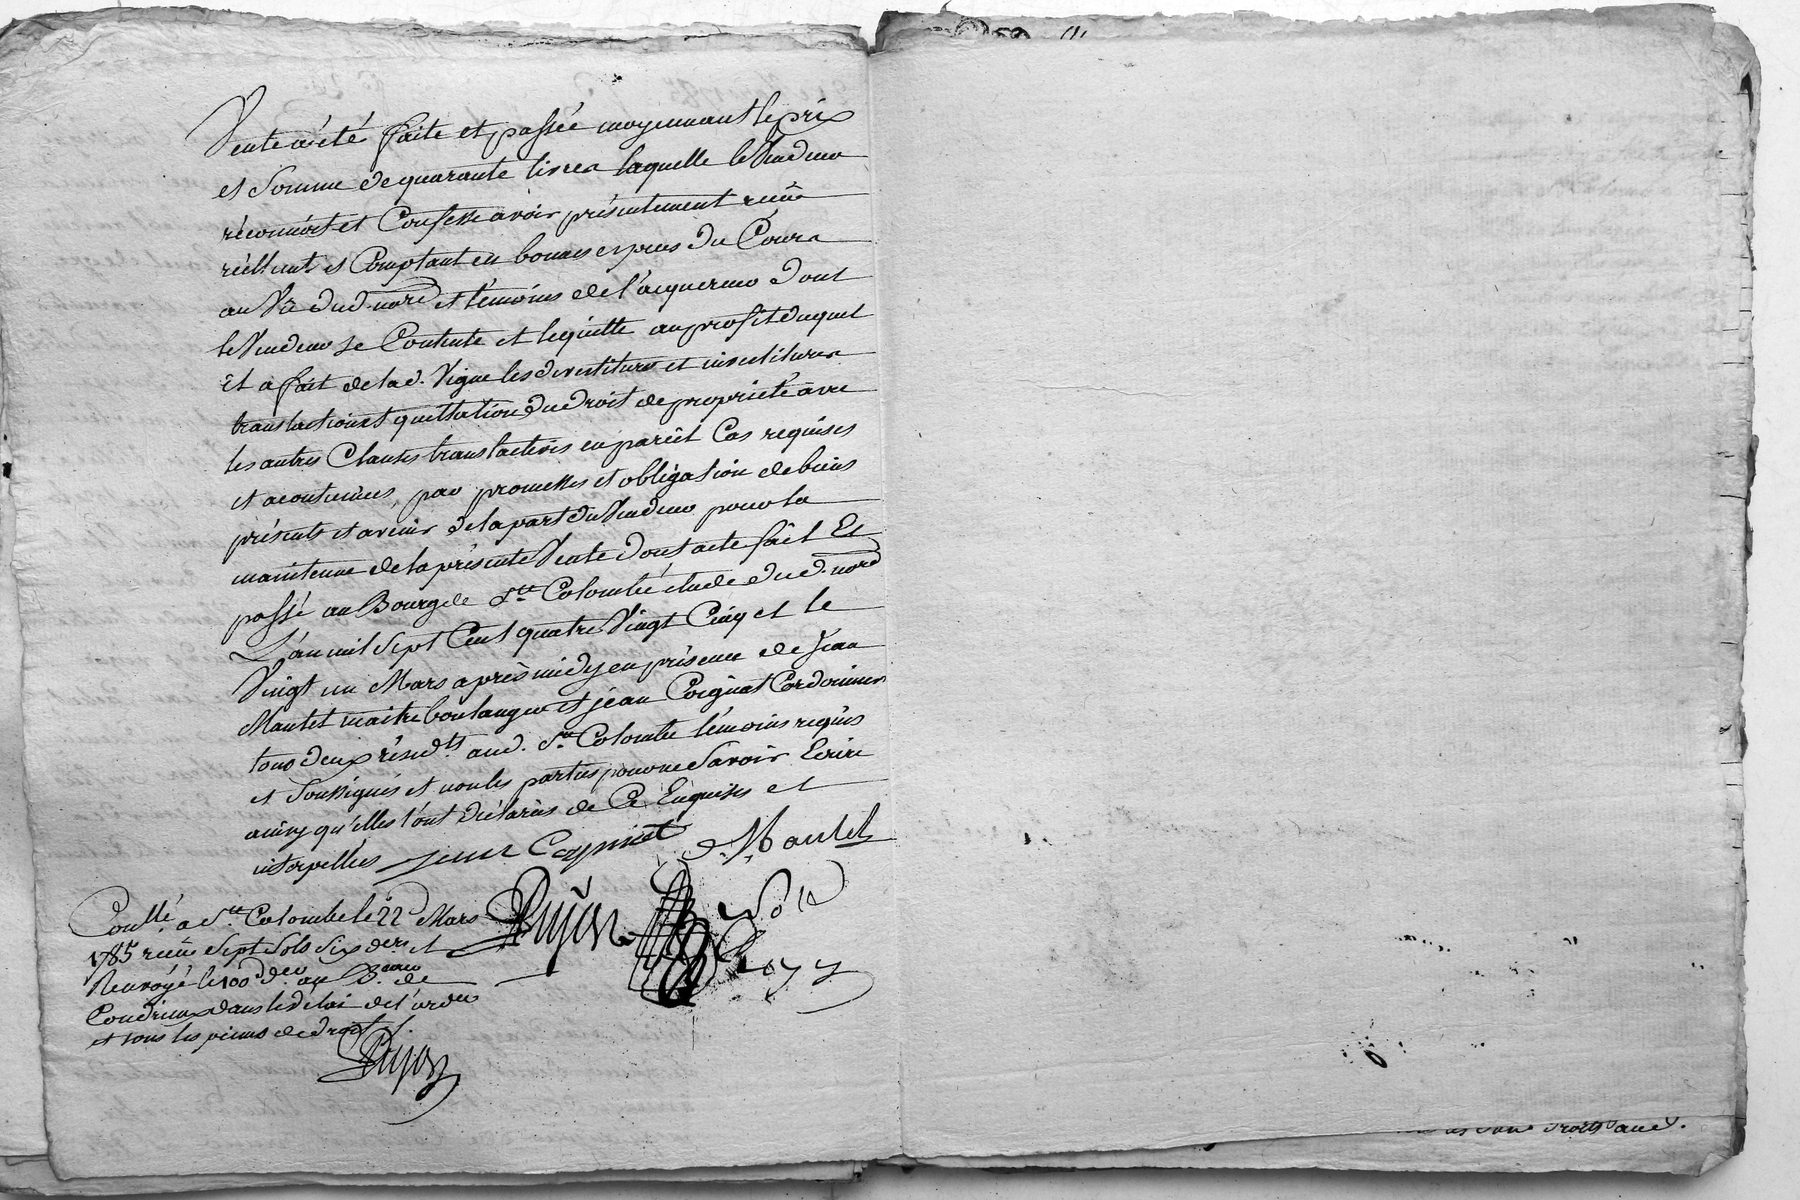 Vente a été faite et passée moyennant le prix
et Somme de quarante livres laquelle le Vendeur
réconnoit et Confesse avoir présentement reçüe
réellemt. et Comptant en bonnes espèces du Cours
au Vû dud. nore. et témoins de l'acquereur dont
le Vendeur se Contente et le quitte au profit duquel
il a fait de lad. Vigne les devestitures et investitures
translation et quittation du droit de proprieté avec
les autres Clauses translatives en pareil Cas requises
et acoutumées, par promesses et obligation de biens
présents et avenir de la part du Vendeur pour la
maintenue de la présente Vente dont acte fait Et
passé au Bourg de Ste. Colombe étude dud. nore.
L'an mil Sept Cent quatre Vingt Cinq et le
Vingt un Mars après midy en présence de Jean
Mantet maitre boulanger et jean Coignat Cordonnier
tous deux résidts. aud. Ste. Colombe témoins requis
et Soussignés et non les parties pour ne Savoir Ecrire
ainsy qu'elles l'ont déclarés de Ce Enquises et
interpellées jean Coyniat J. Mantet
Pujon
Conllé. a Ste. Colombe le 22 Mars
1785 reçu Sept Sols Six ders. et
Renvoyé le 100e. der. au Beau. de
Condrieux dans le délai de l'ordce.
et sous les peines de droit
Pujon
droits aud.